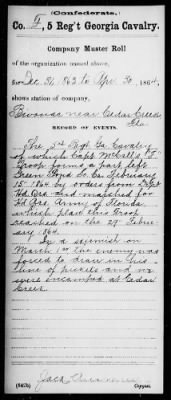 (Confederate.)
Co. F, 5 Reg't Georgia Cavalry.
Company Muster Roll
of the organization named above,
from Dec 31, 1863 to Apr. 30, 1864,
shows station of company,
Bivouac near Cedar Creek
Fla.
RECORD OF EVENTS.
The 5th Regt Ga. Cavalry
of which Capt McCalls
Troop forms a part left
Green Pond So. Ca. February
15" 1864 by orders from Dept
Hd. Qrs. and marched for
Hd Qrs. Army of Florida
which place this Troop
reached on the 29 Febru-
ary 1864.
In a skirmish on
March 1st the enemy was
forced to draw in his
line of pickets and we
were encamped at Cedar
Creek
Copyist.